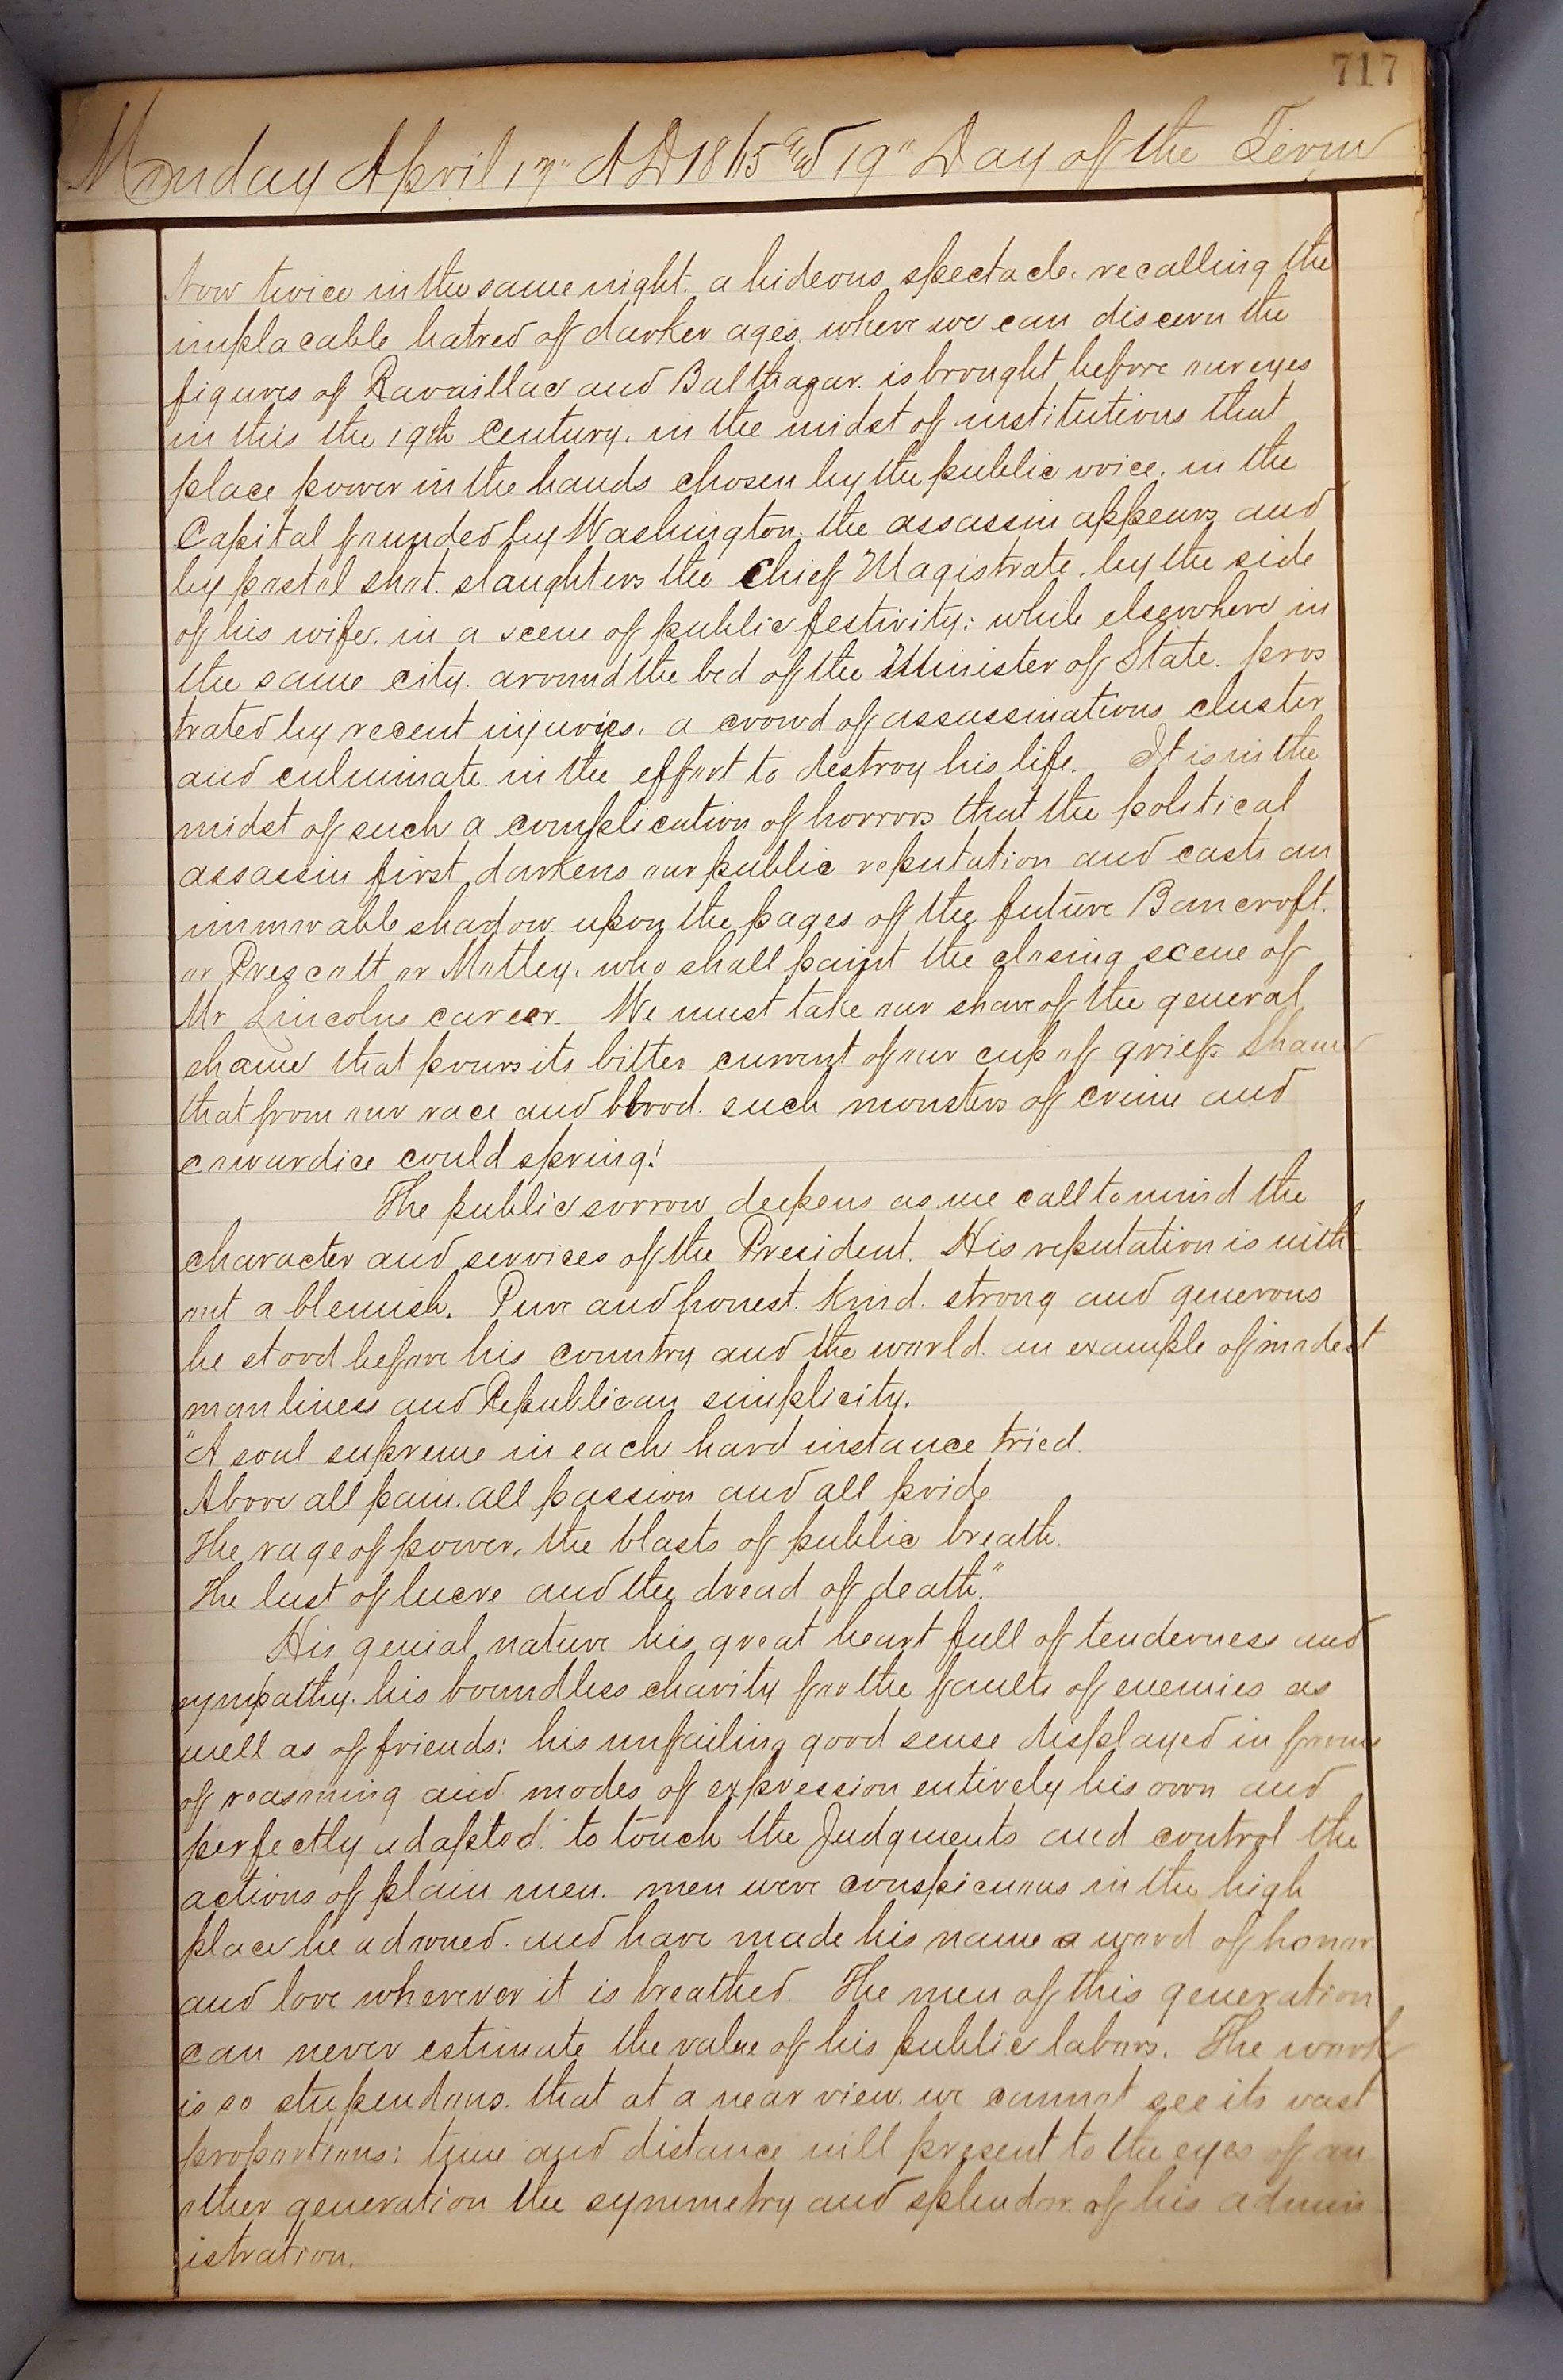 717
Monday April 17" AD 1865 19" Day of the Term
Now twice in the same night. a hideous spectacle. recalling the
implacable hatred of darker ages. where we can discern the
figures of Ravaillac and Balthazar. is brought before our eyes
in this the 19th Century. in the midst of institutions that
place power in the hands chosen by the public voice. in the
Capital founded by Washington. the assassin appears and
by pistol shot. slaughters the Chief Magistrate. by the side
of his wife. in a scene of public festivity: while elsewhere in
the same city. around the bed of the Minister of State. pros
trated by recent injuries. a crowd of assassinations cluster
and culminate in the effort to destroy his life. It is in the
midst of such a complication of horrors that the political
assassin first darkens our public reputation and casts an
immovable shadow upon the pages of the future Bancroft.
or Prescott or Motley. who shall paint the closing scene of
Mr Lincolns career. We must take our share of the general
shame that pours its bitter current of our cup of grief. Shame
that from our race and blood. such monsters of crime and
cowardice could spring!
The public sorrow deepens as we call to mind the
character and services of the President. His reputation is with
out a blemish. Pure and honest. Kind. strong and generous
he stood before his country and the world. an example of modest
manliness and Republican simplicity.
"A soul supreme in each hard instance tried.
Above all pain. all passion and all pride
The rage of power, the blasts of public breath.
The lust of lucre and the dread of death."
His genial nature his great heart full of tenderness and
sympathy. his boundless charity for the faults of enemies as
well as of friends: his unfailing good sense displayed in forms
of reasoning and modes of expression entirely his own and
perfectly adapted. to touch the Judgments and control the
actions of plain men. men were conspicuous in the high
place he adorned. and have made his name a word of honor.
and love wherever it is breathed. The men of this generation
can never estimate the value of his public labors. The work
is so stupendous. that at a near view. we cannot see its vast
proportions: time and distance will present to the eyes of an
other generation the symmetry and splendor of his admin
istration.